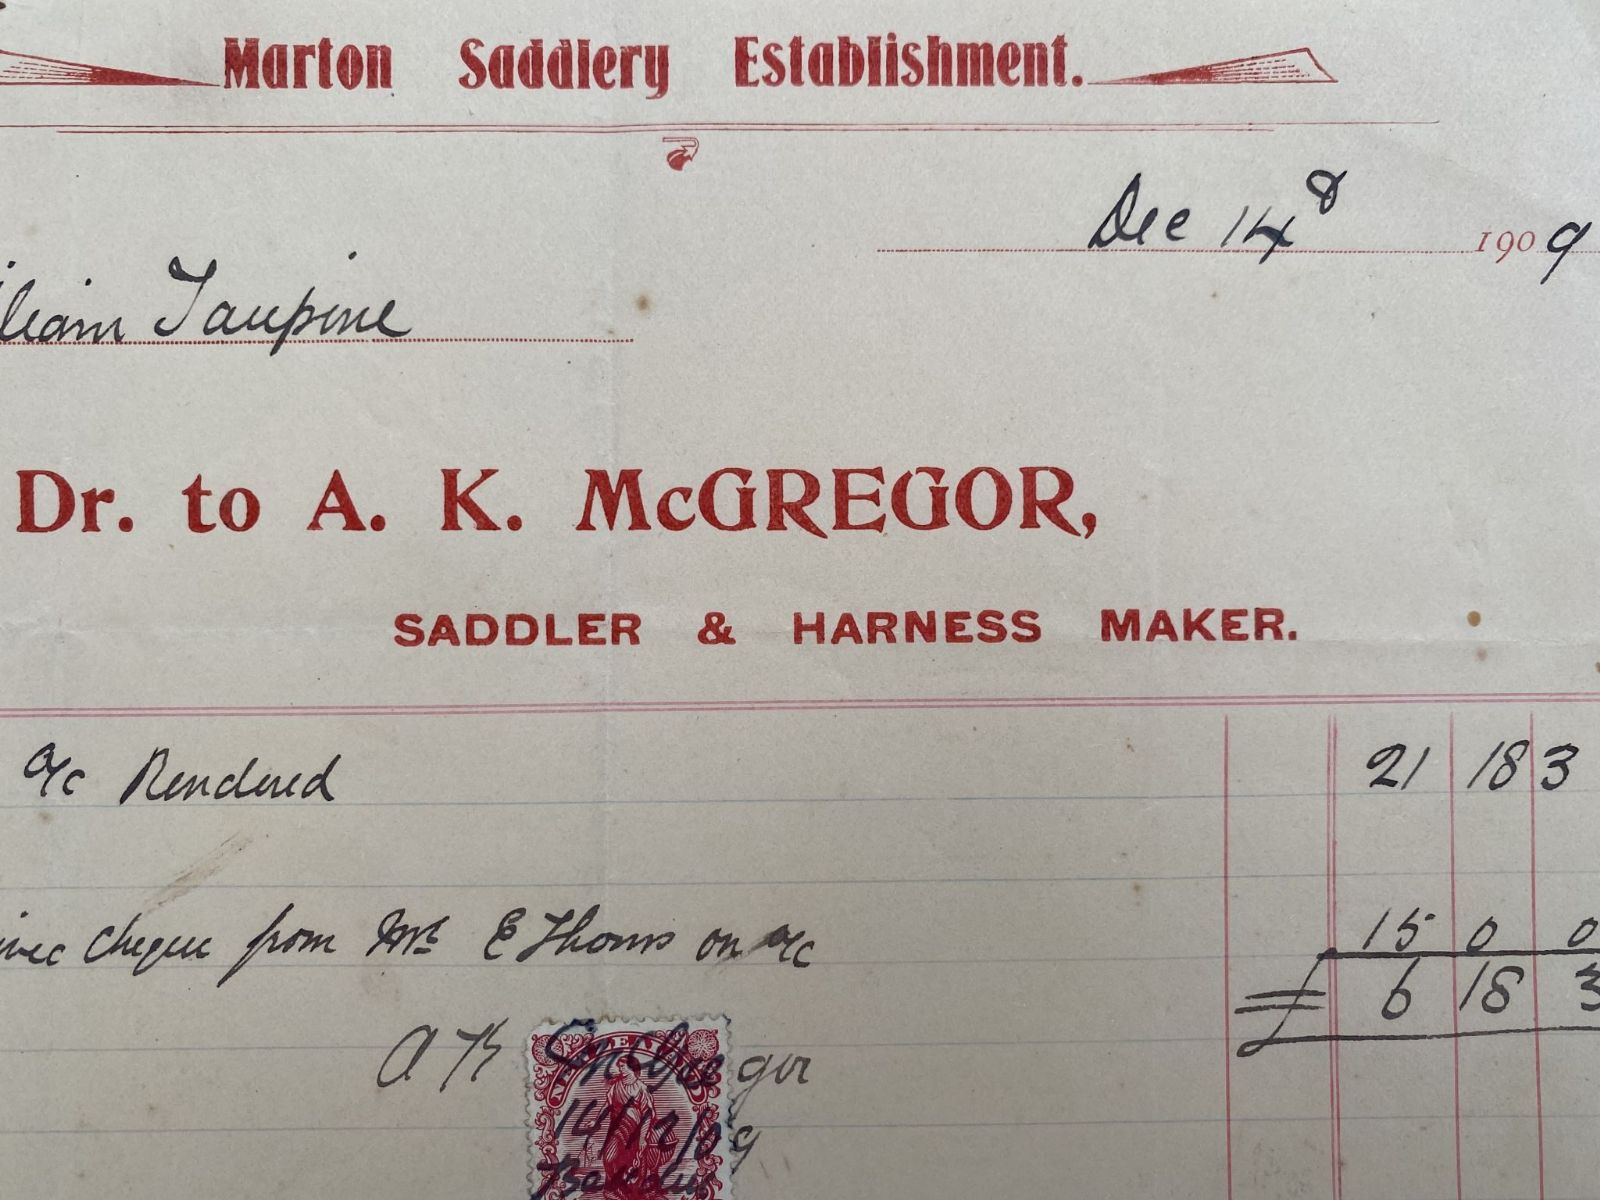 Marton Saddlery Establishment.
Dec 14 1909
lliam Taupine
Dr. to A. K. McGREGOR,
SADDLER & HARNESS MAKER.
a/c Rendered 21 18 3
cheque from Mr E Thoms on a/c 15 0 0
£ 6 18 3
A K McGregor
14/12/09